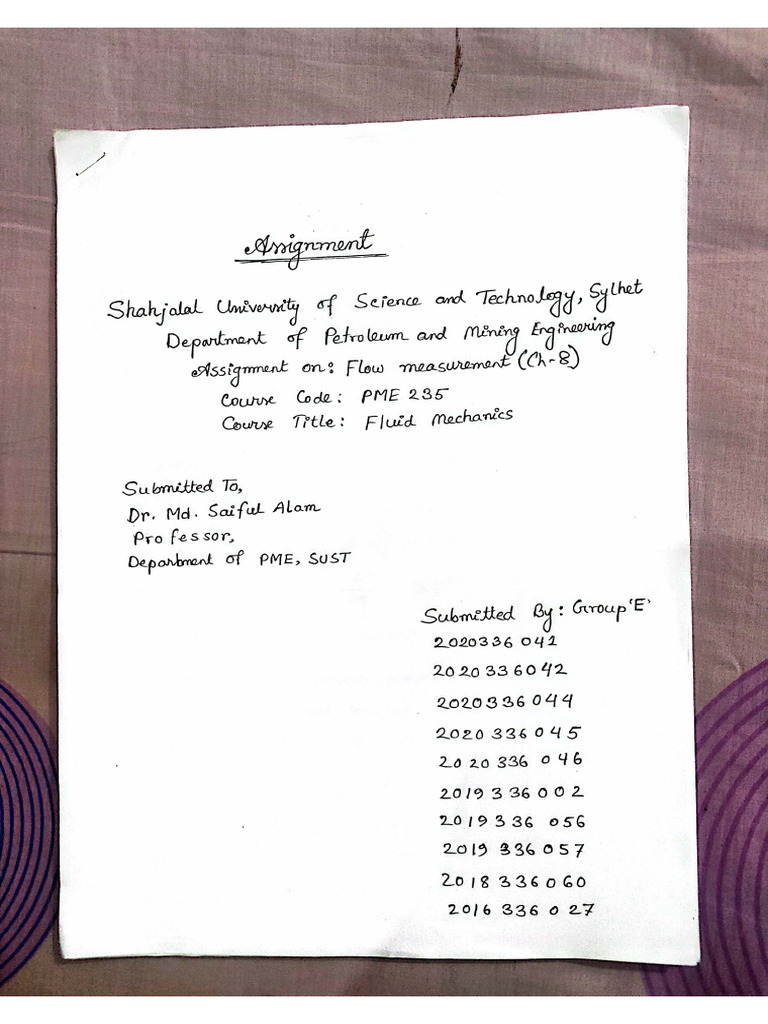 Assignment
Shahjalal University of Science and Technology, Sylhet
Department of Petroleum and Mining Engineering
Assignment on: Flow measurement (Ch-8)
Course Code: PME 235
Course Title: Fluid Mechanics
Submitted To,
Dr. Md. Saiful Alam
Professor,
Department of PME, SUST
Submitted By: Group 'E'
2020336041
2020336042
2020336044
2020336045
2020336046
2019336002
2019336056
2019336057
2018336060
2016336027